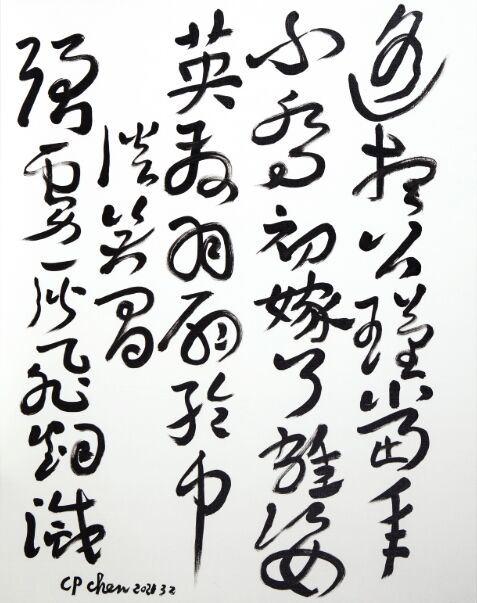 遙想公瑾當年
小喬初嫁了雄姿
英發羽扇綸巾
談笑間
強虜灰飛煙滅
CP Chen